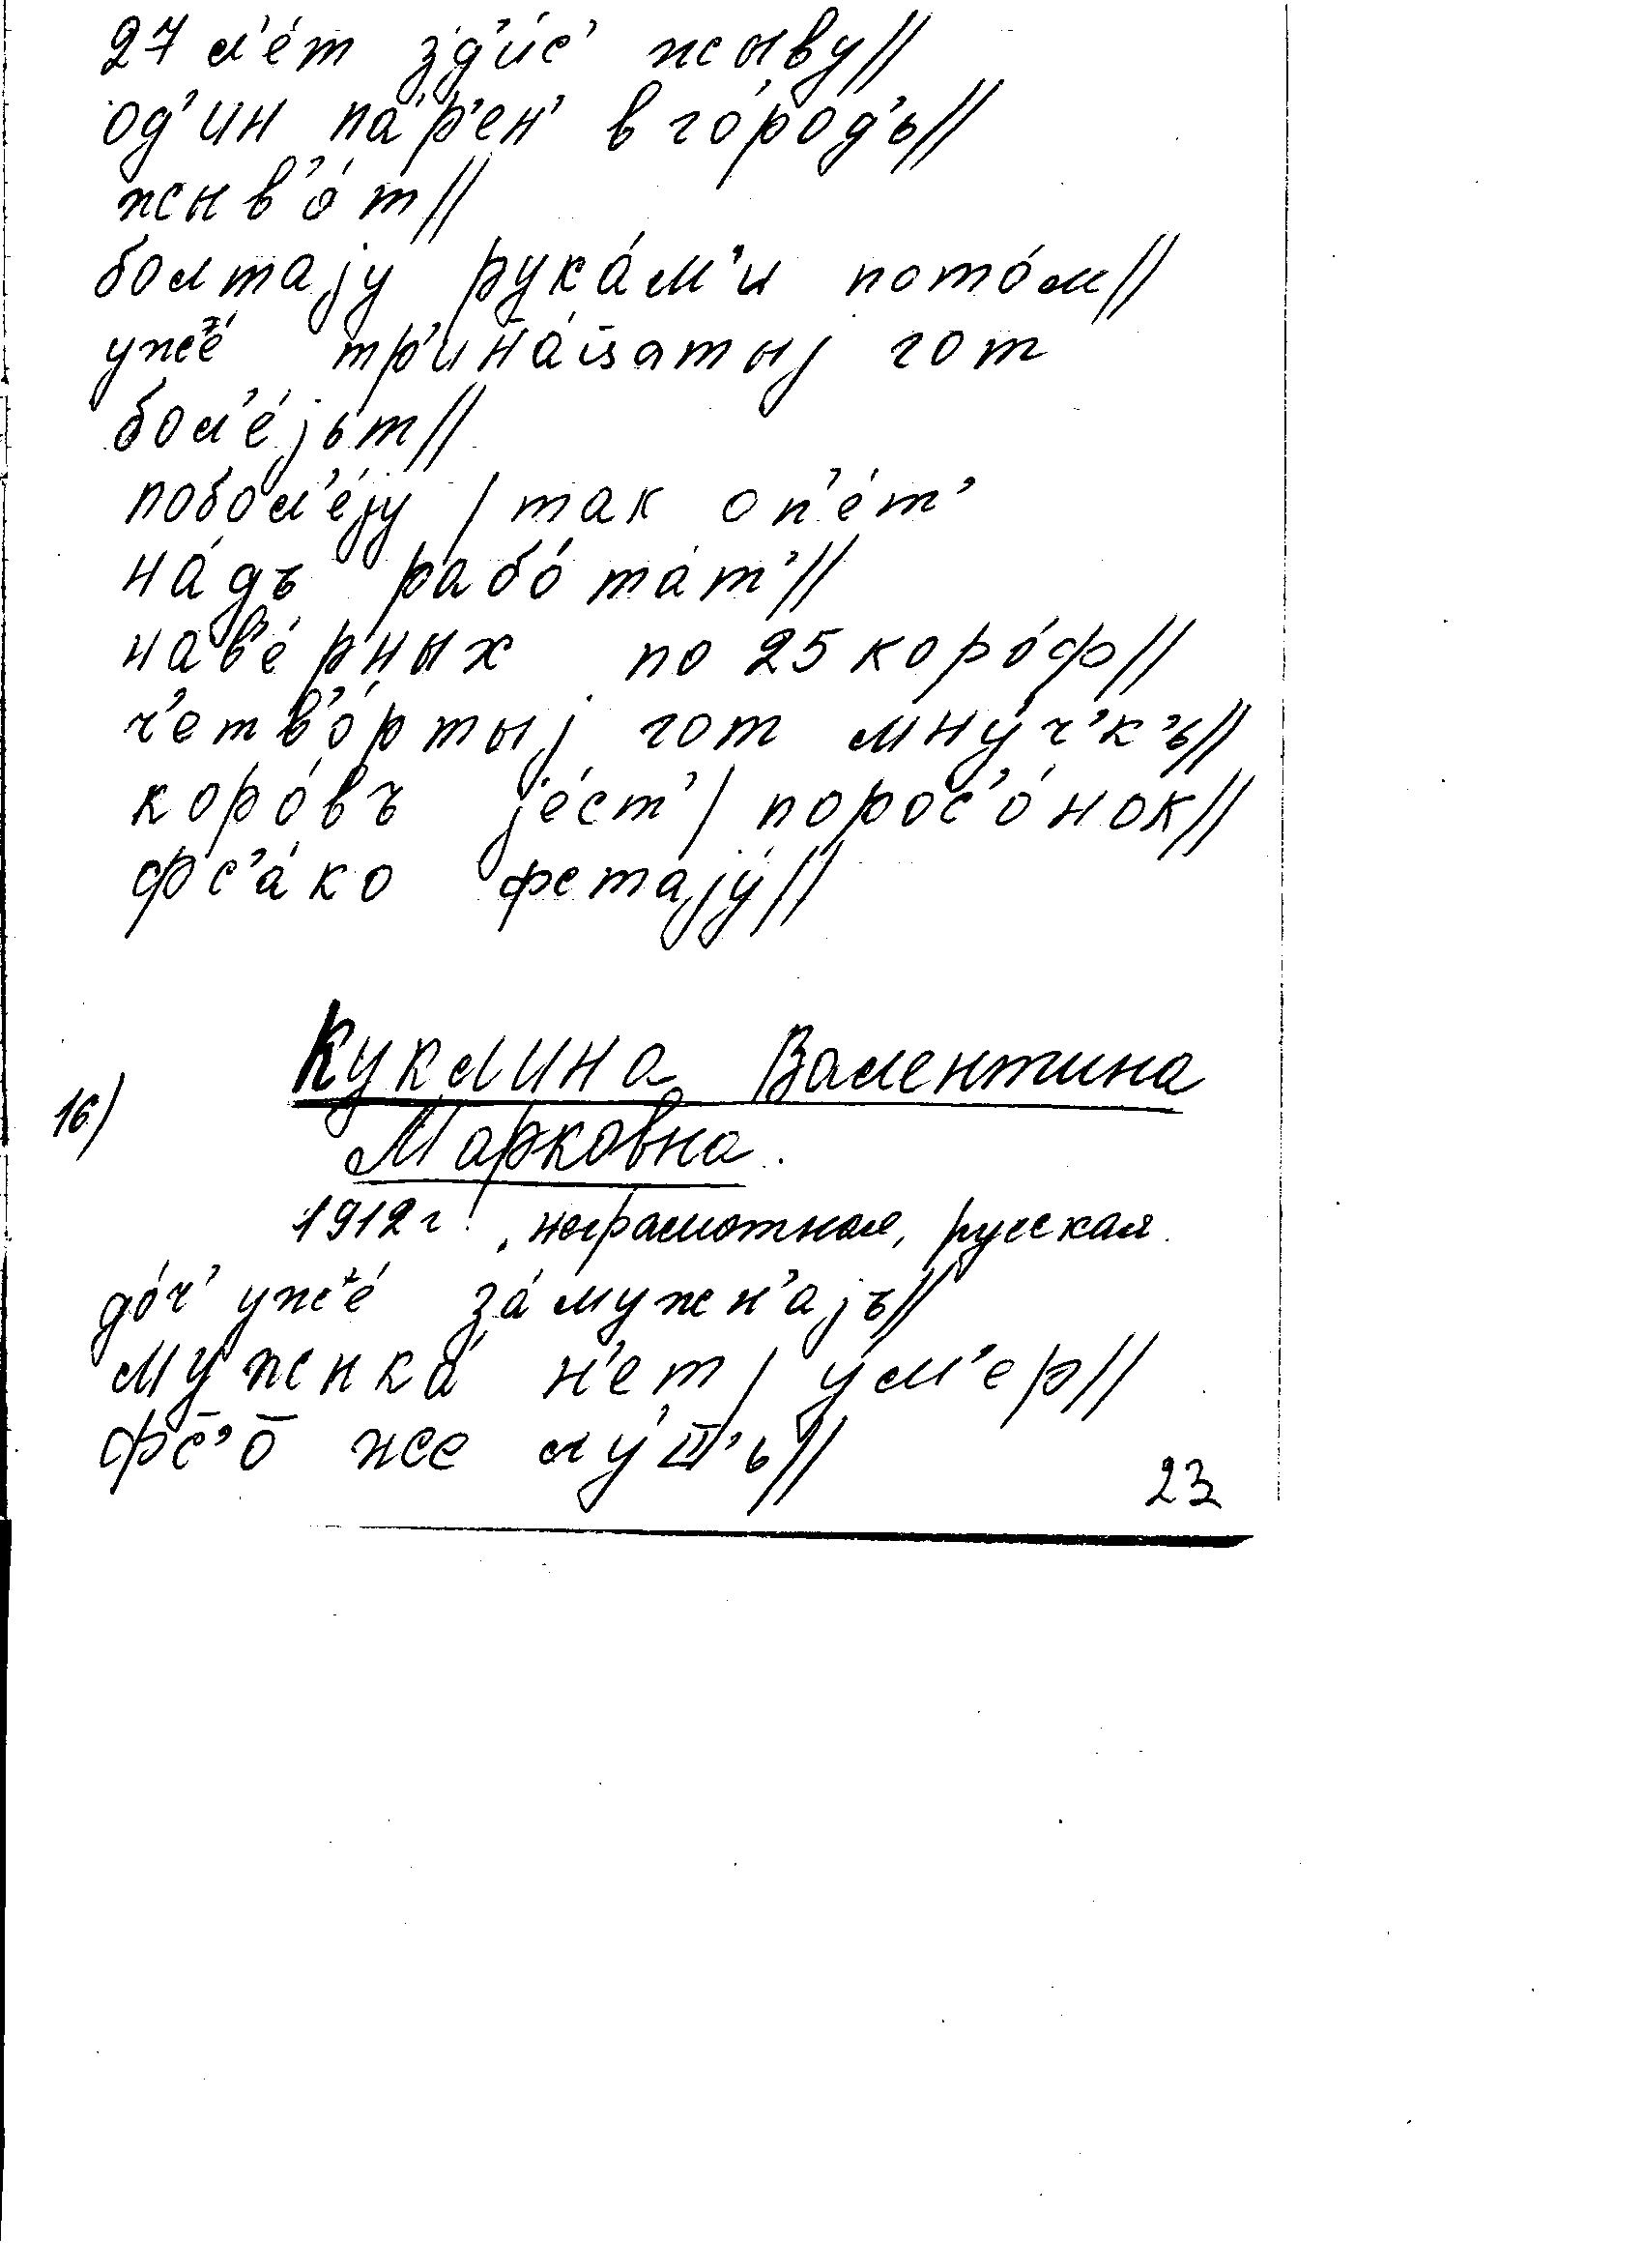 27 л'е́т зд'и́с' жыву//
од'ин па́р'ен' в го́род'ь//
жыв'о́т//
болтајy рука́м'и пото́м//
уже́ тр'ина́цатыј гот
бол'е́јьт//
побол'е́јy / так оп'е́т'
на́дъ рабо́тат'//
нав'е́рных по 25 коро́ф//
ч'етв'о́ртыј гот мну́ч'к'ь//
коро́въ је́ст' / порос'о́нок//
фс'а́ко фстајý//
16) Куклина Валентина
Марковна.
1912 г. неграмотная, русская.
до́ч' уже́ за́мужн'ајъ//
мужыка́ н'ет / у́м'ер//
фс̄'о̄ же лу́ш̄'ь//
23